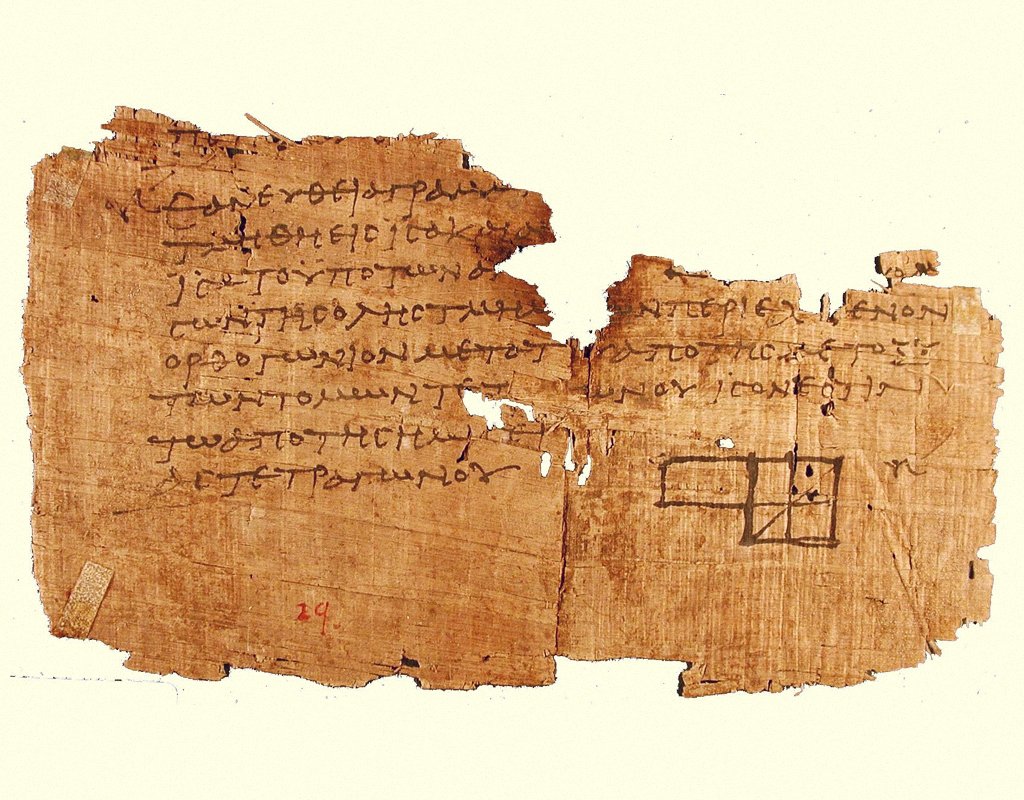 ΕΑΝ ΕΥΘΕΙΑ ΓΡΑΜΜ
ΤΜΗΘΗ ΕΙϹ ΙϹΑ ΚΑΙ Α
ΙϹΑ ΤΟ ΥΠΟ ΤΩΝ Α
ϹΩΝ ΤΗϹ ΟΛΗϹ ΤΜΗΜ Ν ΠΕΡΙΕΧ ΕΝΟΝ
ΟΡΘΟΓΩΝΙΟΝ ΜΕΤΟ Τ ΑΠΟ ΤΗϹ ΜΕΤΟΞΥ
ΤΩΝ ΤΟΜΩΝ ΤΕΤ ΩΝΟΥ ΙϹΟΝ ΕϹΤΙΝ
ΤΩ ΑΠΟ ΤΗϹ ΗΜΙ
ΑϹ ΤΕΤΡΑΓΩΝΟΥ
29